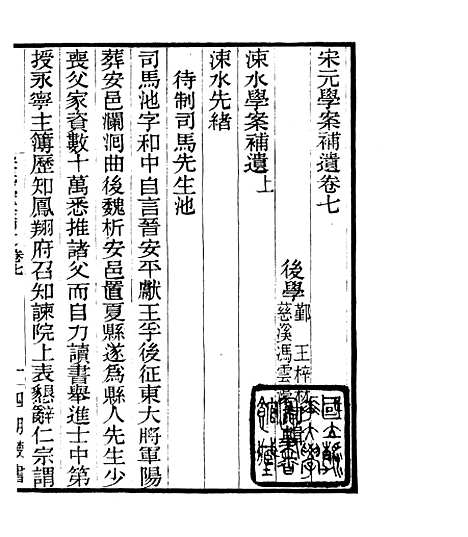 宋元學案補遺卷七
後學鄞 王梓材
慈溪馮雲濠
涑水學案補遺上
涑水先緒
待制司馬先生池
司馬池字和中自言晉安平獻王孚後征東大將軍陽
葬安邑瀾洄曲後魏析安邑置夏縣遂為縣人先生少
喪父家資數十萬悉推諸父而自力讀書舉進士中第
授永寧主簿歷知鳳翔府召知諫院上表懇辭仁宗謂
卷七
一 四明叢書